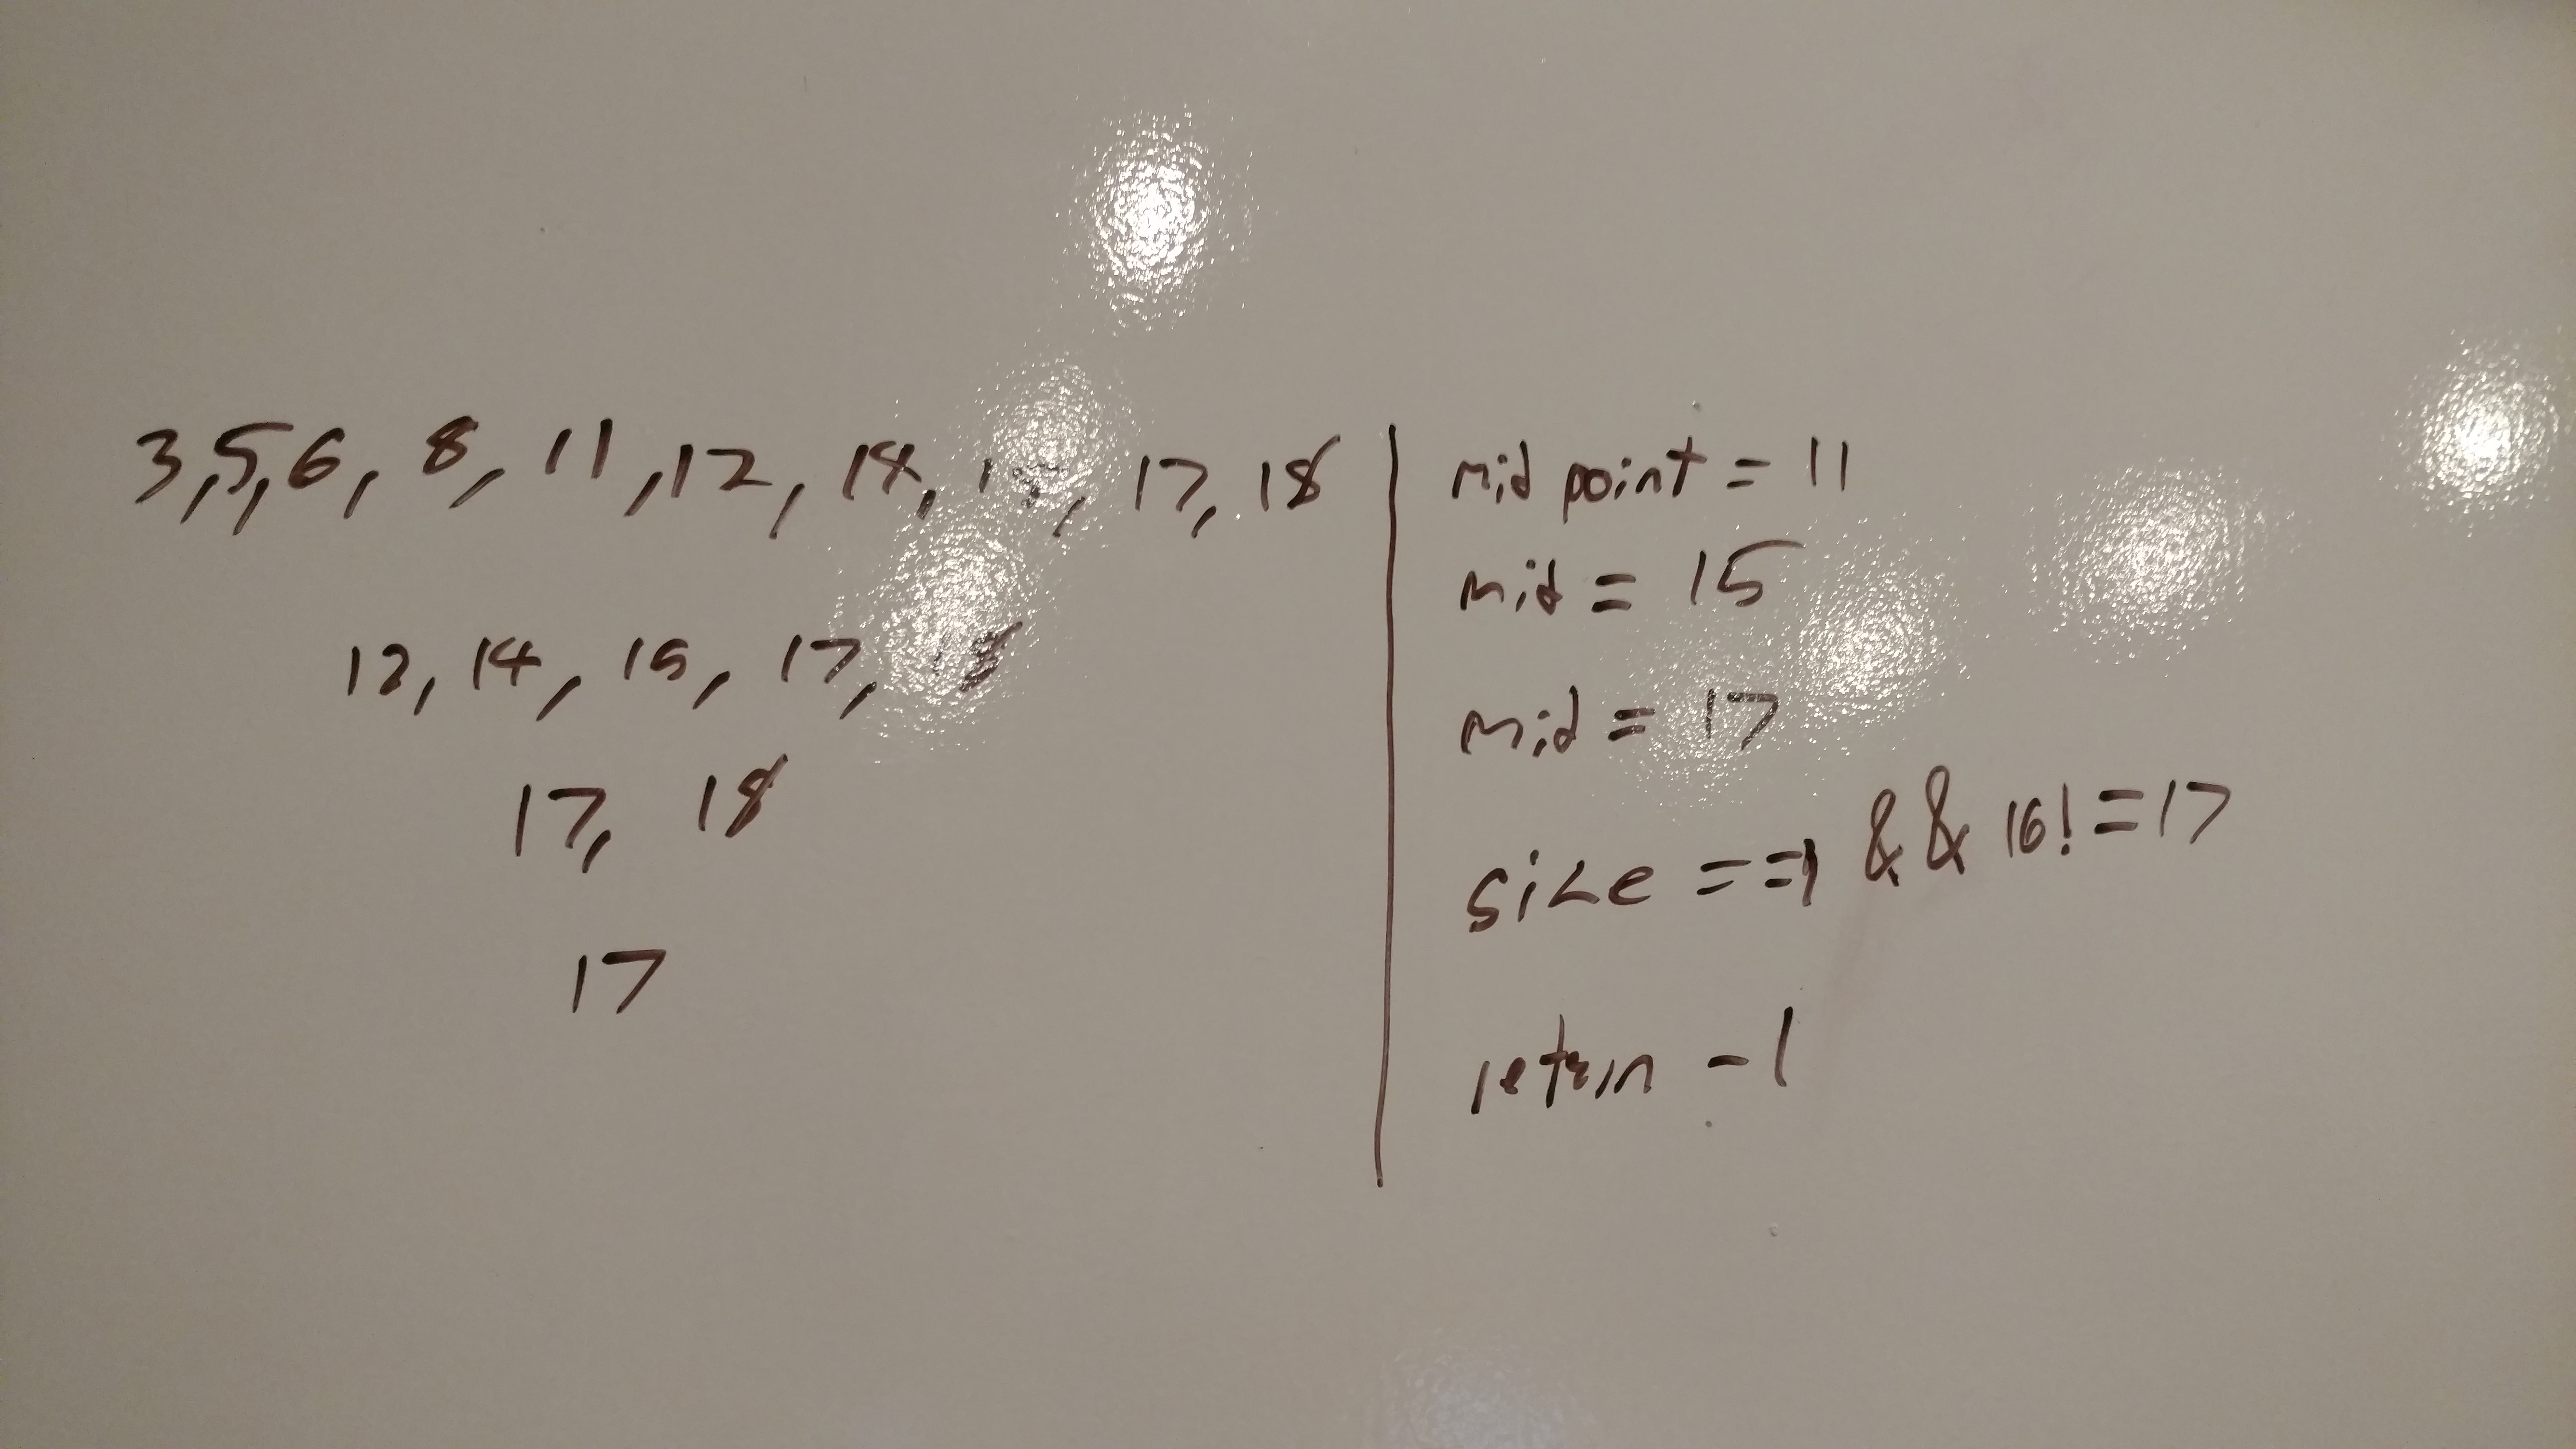 3,5,6, 8, 11,12, 14, 15, 17, 18
12, 14, 15, 17, 18
17, 18
17
mid point = 11
mid = 15
mid = 17
size ==1 && 16!=17
return -1